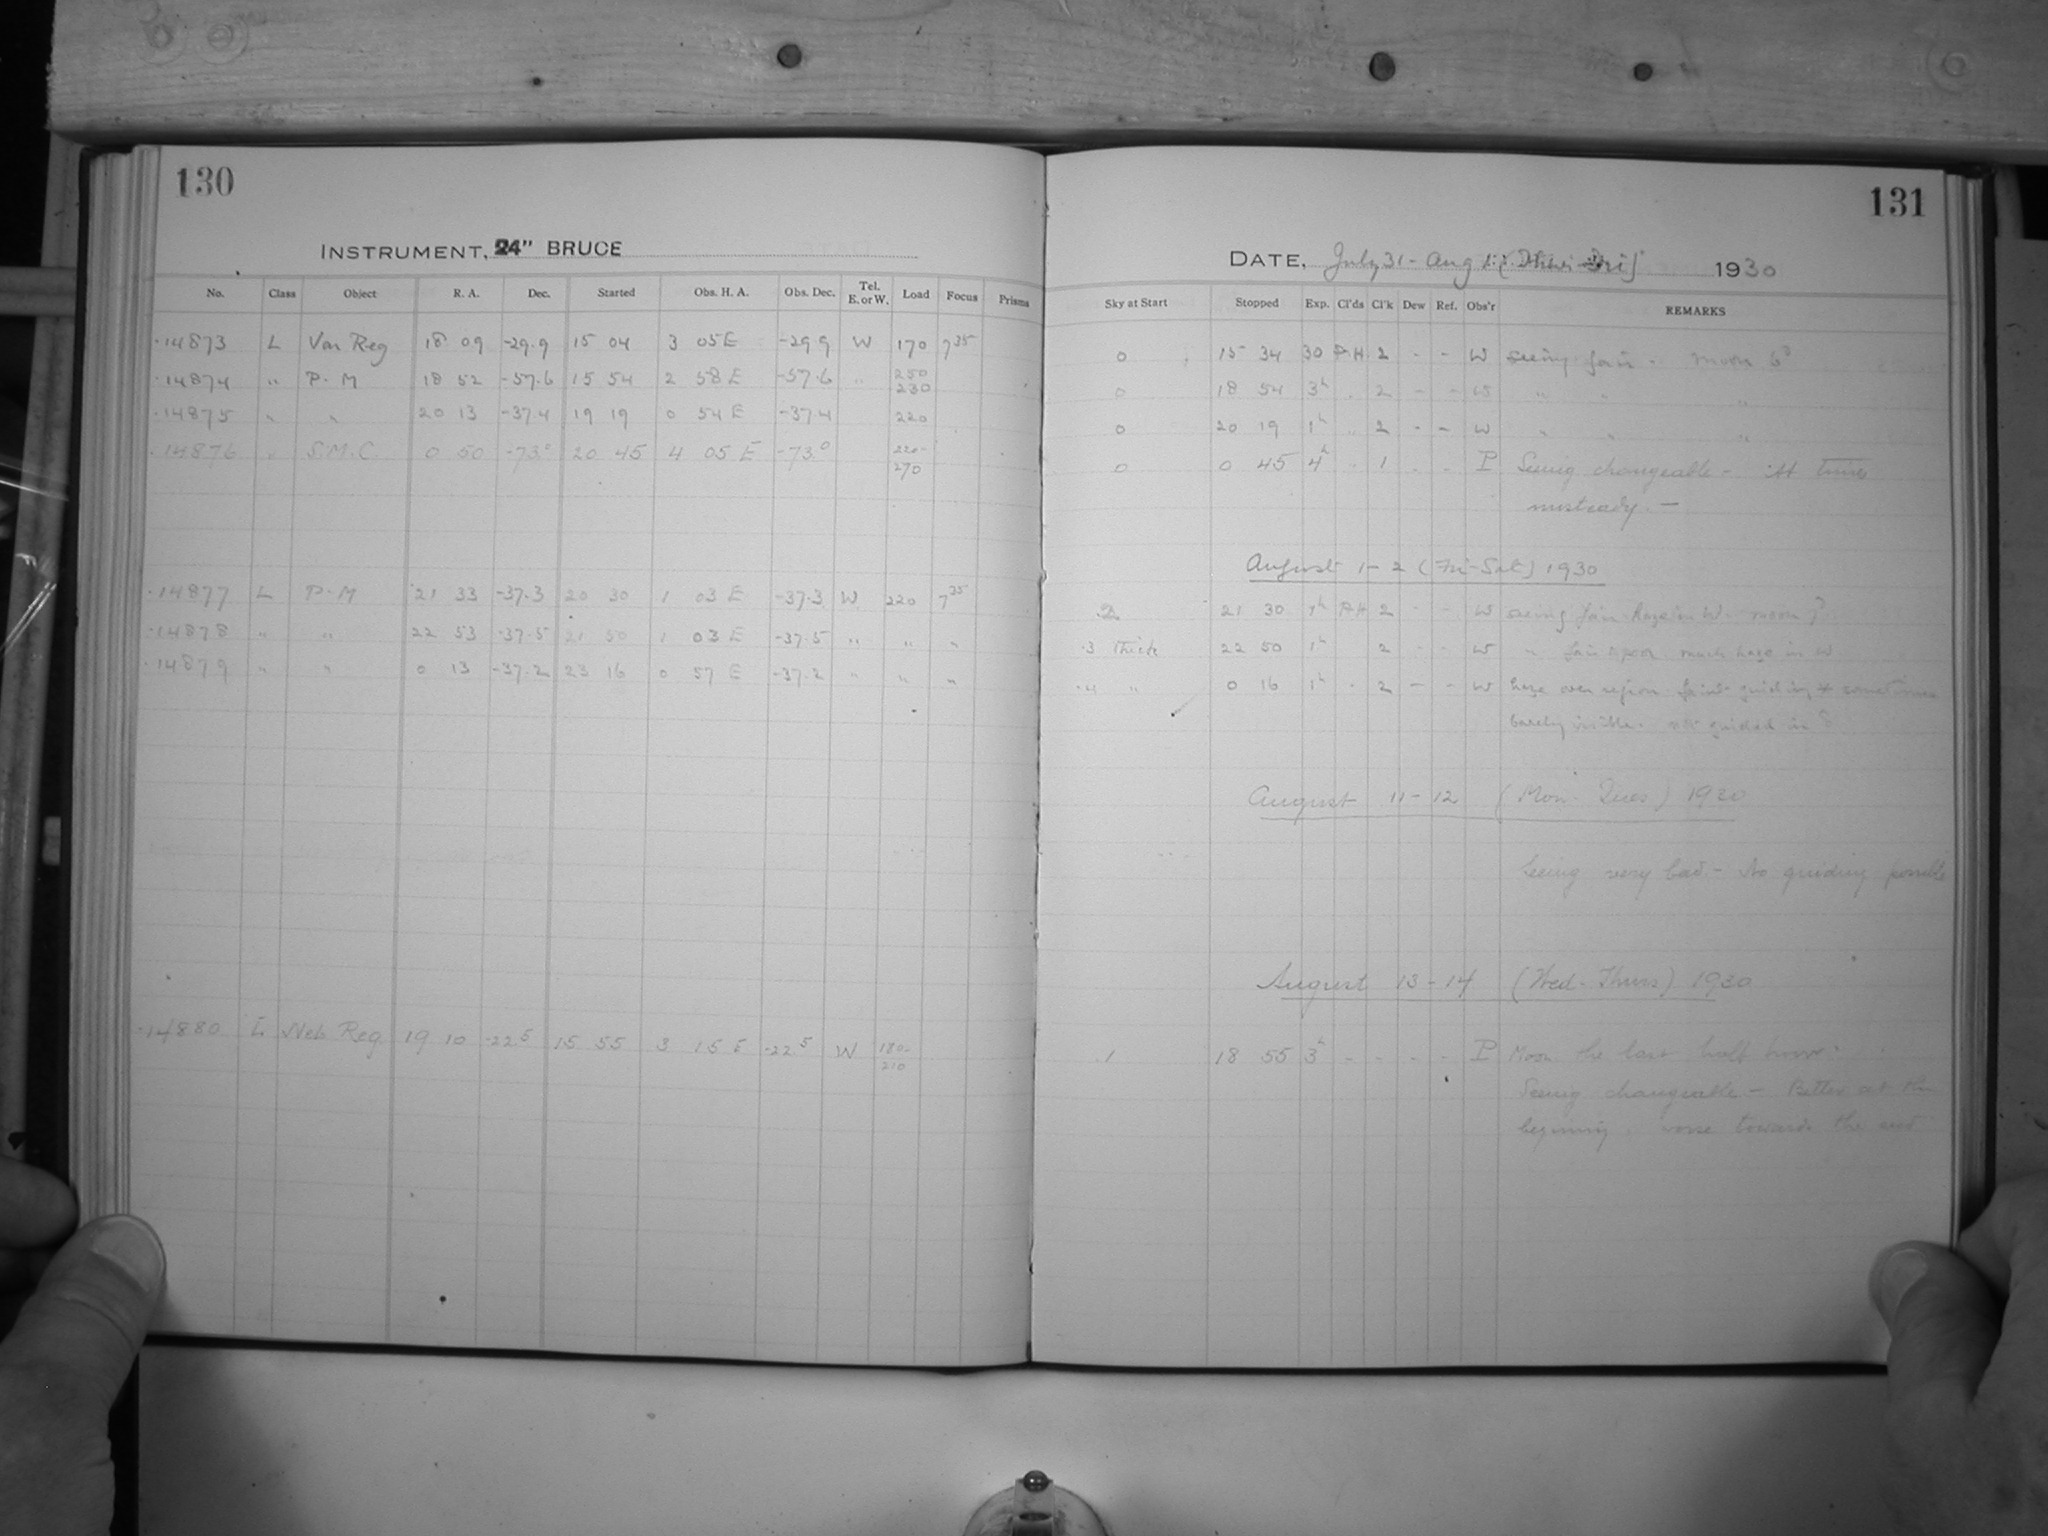 130
INSTRUMENT, 24" BRUCE
No. Class Object R. A. Dec. Started Obs. H. A. Obs. Dec. Tel. E. or W. Load Focus Prisms
14873 L Var Reg 18 09 -29.9 15 04 3 05 E -29.9 W 170 7 35
14874 " P. M 18 52 -57.6 15 54 2 58 E -57.6 " 250
230
14875 " " 20 13 -37.4 19 19 0 54 E -37.4 220
14876 " S.M.C. 0 50 -73.0 20 45 4 05 E -73.0 220-
270
14877 L P. M 21 33 -37.3 20 30 1 03 E -37.3 W 220 7 35
14878 " " 22 53 -37.5 21 50 1 03 E -37.5 " " "
14879 " " 0 13 -37.2 23 16 0 57 E -37.2 " " "
14880 L Neb Reg 19 10 -22.5 15 55 3 15 E -22.5 W 180-
210
131
DATE, July 31 - Aug 1 1930
Sky at Start Stopped Exp. Cl'ds Cl'k Dew Ref. Obs'r REMARKS
0 15 34 30 2 - - W seeing fair - moon 6
0 18 54 3h 2 - - W " " "
0 20 19 1h 2 - - W " " "
0 0 45 4h 1 - - P Seeing changeable - At times
unsteady. -
August 1 - 2 (Fri-Sat) 1930
2 21 30 1h 2 - - W seeing fair Haze in W. moon 7
.3 Thick 22 50 1h 2 - - W " fair to poor much haze in W
.4 " 0 16 1h 2 - - W haze over region faint guiding * sometimes
barely visible. not guided in δ
August 11-12 (Mon. Tues) 1930
Seeing very bad. - No guiding possible
August 13-14 (Wed-Thurs) 1930
.1 18 55 3h - - - - P Moon the last half hour.
Seeing changeable - Better at the
beginning. worse towards the end